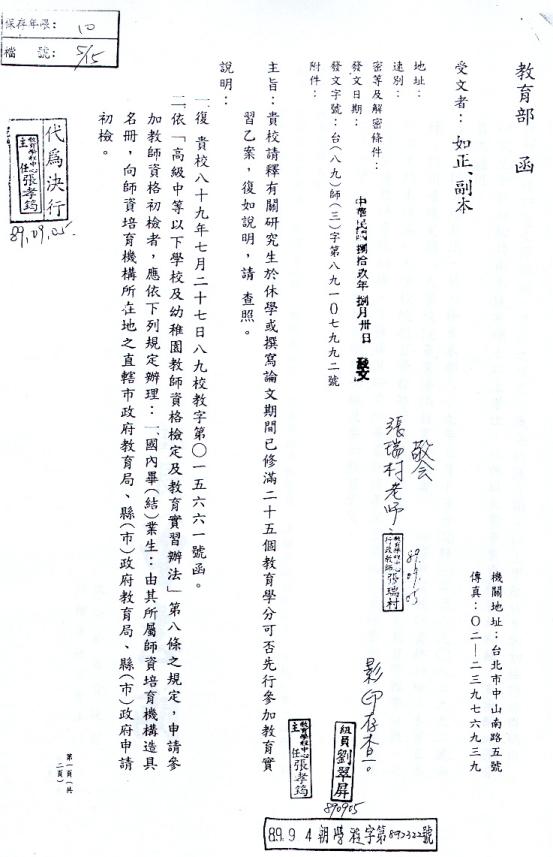 保存年限：10
檔　　號：5/15
教育部　函
機關地址：台北市中山南路五號
傳真：〇二－二三九七六九三九
受文者：如正、副本
地址：
速別：
密等及解密條件：
發文日期：中華民國捌拾玖年捌月卅日　發文
發文字號：台（八九）師（三）字第八九一〇七九九二號
附件：
主旨：貴校請釋有關研究生於休學或撰寫論文期間已修滿二十五個教育學分可否先行參加教育實
習乙案，復如說明，請　查照。
說明：
一、復　貴校八十九年七月二十七日八九校教字第〇一五六六一號函。
二、依「高級中等以下學校及幼稚園教師資格檢定及教育實習辦法」第八條之規定，申請參
加教師資格初檢者，應依下列規定辦理：一、國內畢（結）業生：由其所屬師資培育機構造具
名冊，向師資培育機構所在地之直轄市政府教育局、縣（市）政府教育局、縣（市）政府申請
初檢。
敬会
張瑞村老師
教育學程中心
行政教師 張瑞村
89.09.05
影印存查。
組員 劉翠屏
890905
教育學程中心
主任 張孝筠
代為決行
教育學程中心
主任 張孝筠
89.09.05.
第一頁（共
二頁）
89. 9 4 朝學程字第892322號